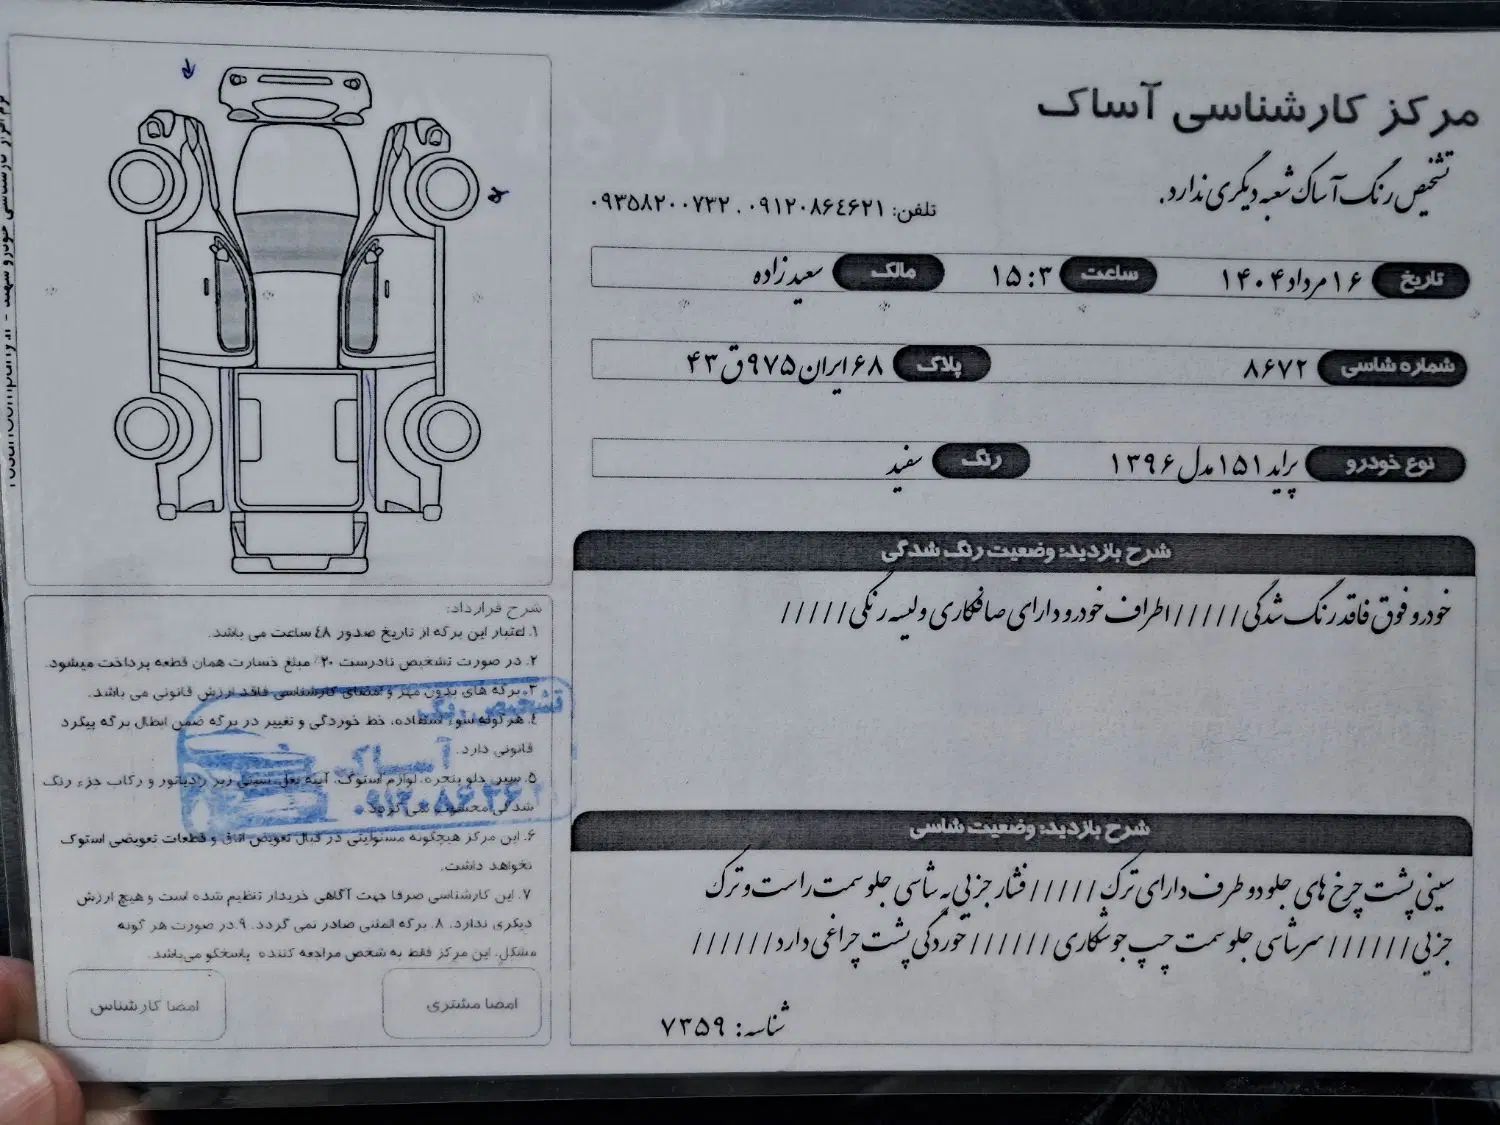 مرکز کارشناسی آساک
تشخیص رنگ آساک شعبه دیگری ندارد.
تلفن: ۰۹۱۲۰۸۶۴۶۲۱ . ۰۹۳۵۸۲۰۰۷۳۲
تاریخ ۱۶ مرداد ۱۴۰۴ ساعت ۱۵:۳ مالک سعیدزاده
شماره شاسی ۸۶۷۲ پلاک ۶۸ ایران ۹۷۵ ق ۴۳
نوع خودرو پراید ۱۵۱ مدل ۱۳۹۶ رنگ سفید
شرح بازدید: وضعیت رنگ شدگی
خودرو فوق فاقد رنگ شدگی ///// اطراف خودرو دارای صافکاری و لیسه رنگی /////
شرح بازدید: وضعیت شاسی
سینی پشت چرخ های جلو دو طرف دارای ترک ///// فشار جزیی به شاسی جلو سمت راست و ترک
جزیی ////// سر شاسی جلو سمت چپ جوشکاری ////// خوردگی پشت چراغی دارد //////
شناسه: ۷۳۵۹
شرح قرارداد:
۱. اعتبار این برگه از تاریخ صدور ٤٨ ساعت می باشد.
۲. در صورت تشخیص نادرست ۲۰٪ مبلغ خسارت همان قطعه پرداخت میشود.
۳. برگه های بدون مهر و امضای کارشناسی فاقد ارزش قانونی می باشد.
٤. هرگونه سوء استفاده، خط خوردگی و تغییر در برگه ضمن ابطال برگه پیگرد
قانونی دارد.
۵. سپر، جلو پنجره، لوازم استوک، آینه بغل، سینی زیر رادیاتور و رکاب جزء رنگ
شدگی محسوب نمی گردد.
۶. این مرکز هیچگونه مسئولیتی در قبال تعویض اتاق و قطعات تعویضی استوک
نخواهد داشت.
۷. این کارشناسی صرفا جهت آگاهی خریدار تنظیم شده است و هیچ ارزش
دیگری ندارد. ۸. برگه المثنی صادر نمی گردد. ۹. در صورت هر گونه
مشکل، این مرکز فقط به شخص مراجعه کننده پاسخگو می‌باشد.
امضا مشتری
امضا کارشناس
تشخیص رنگ
آساک